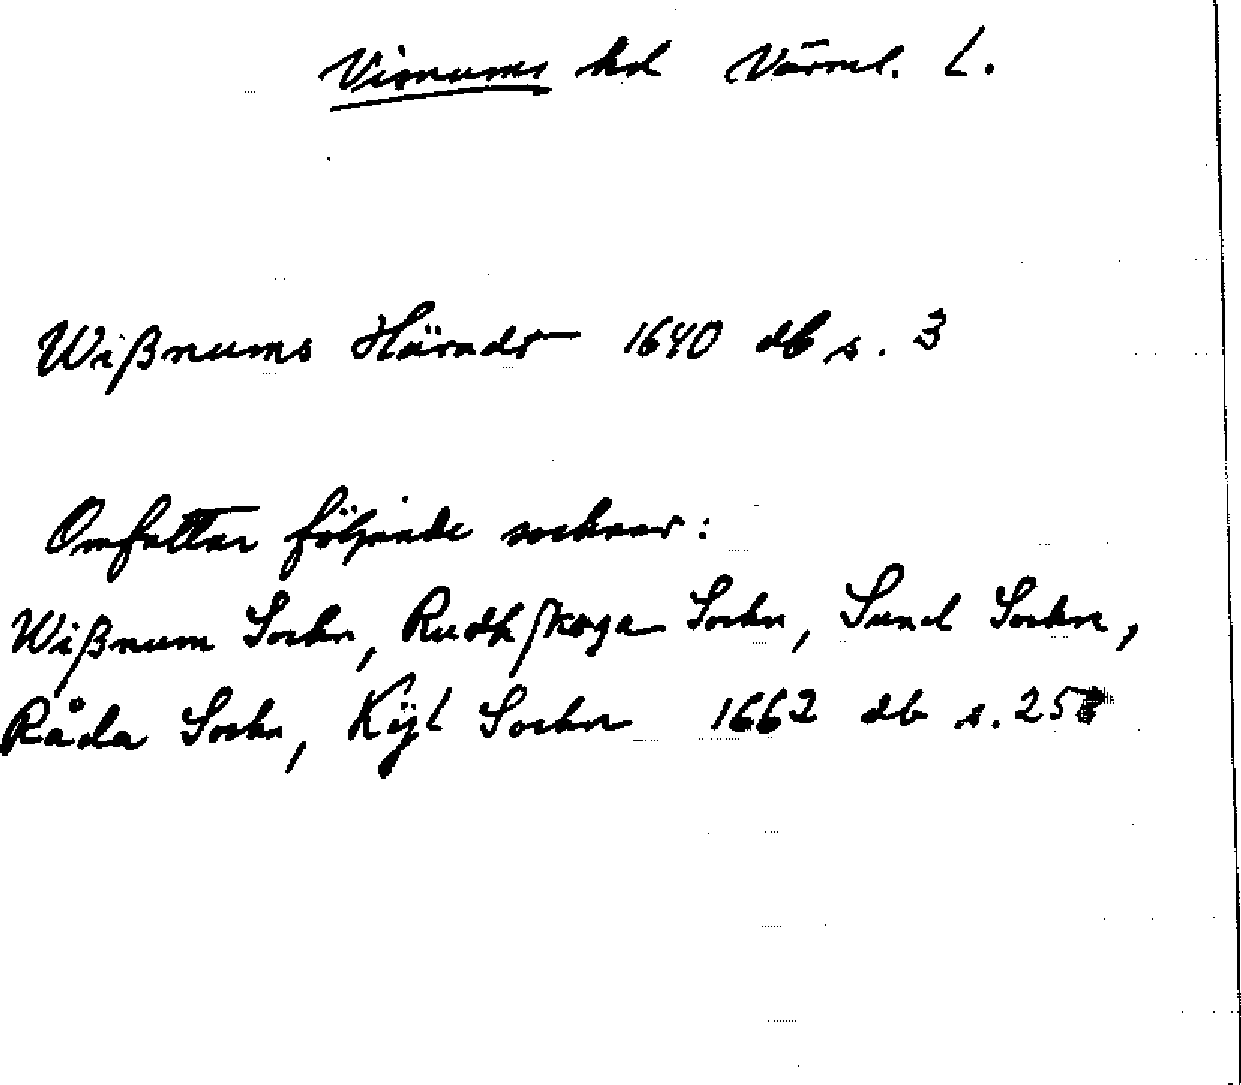 Visnums hd Värml. L.
Wißnums Häradr 1640 db s. 3
Omfattar följande socknar:
Wißnum Sockn, Rudhskoga Sockn, Sund Sockn,
Råda Sockn, Kijl Sockn 1662 db s. 25